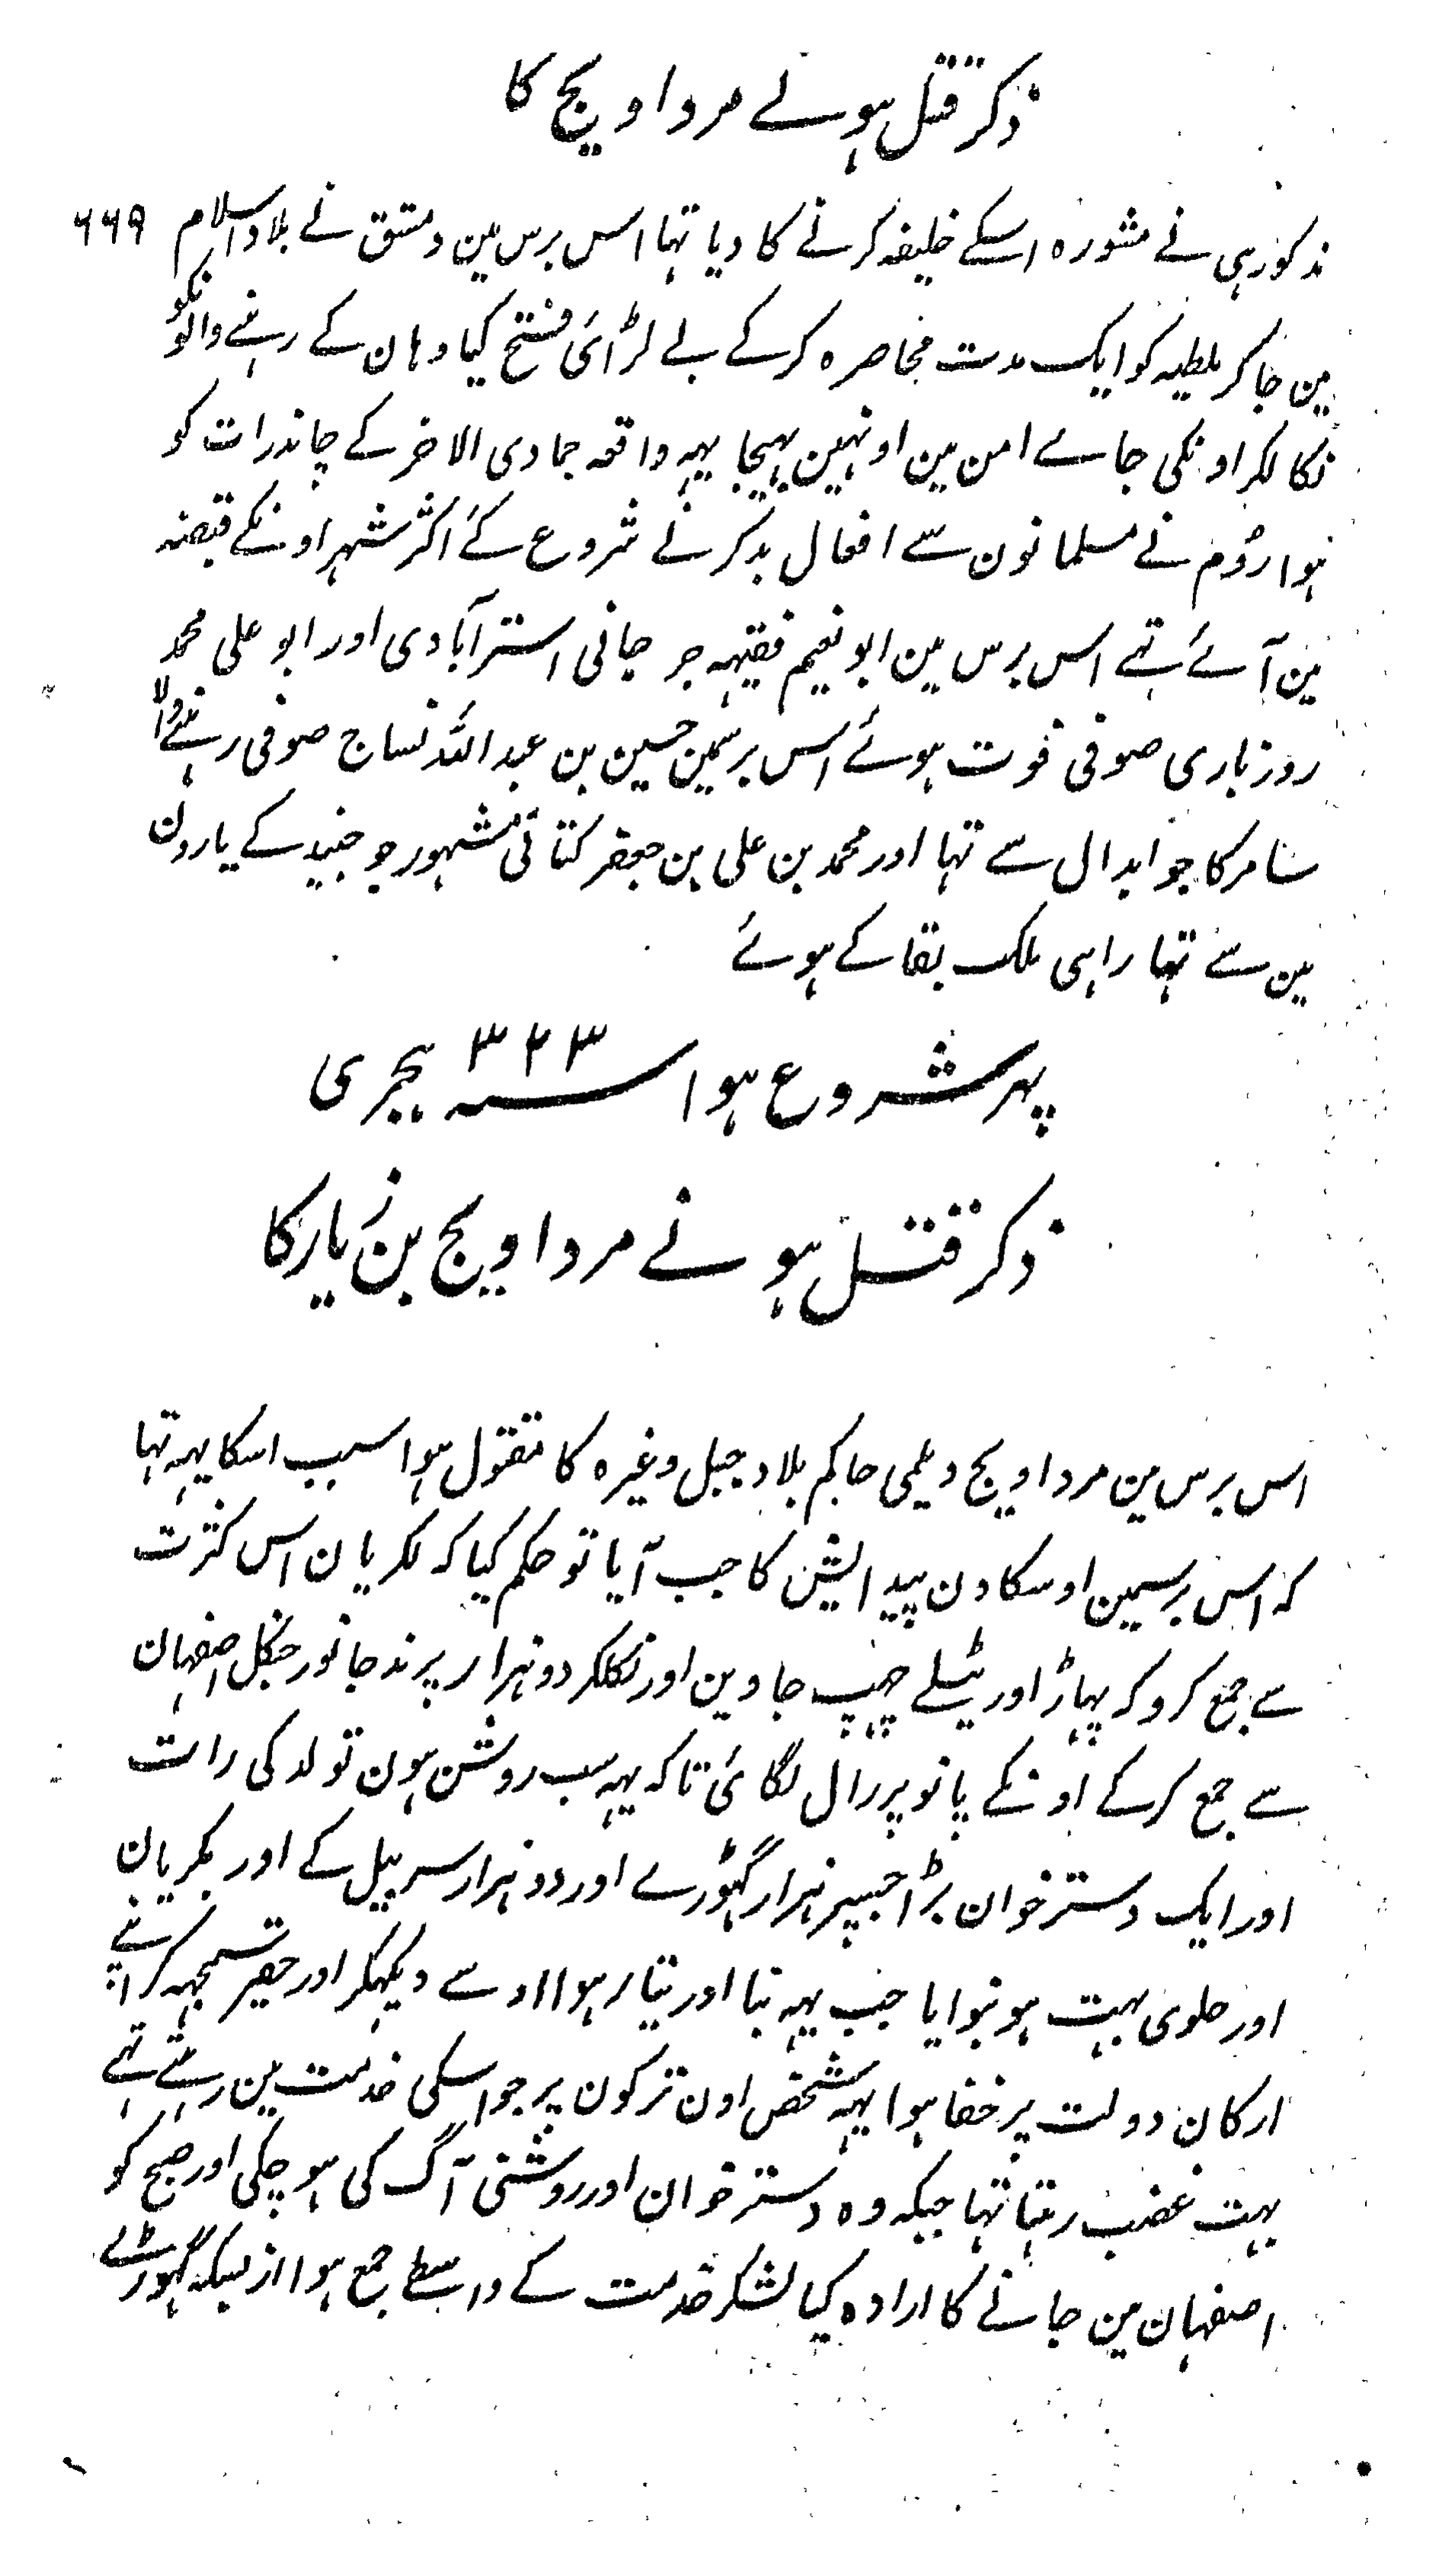 ذکر قتل ہونے مرداویج کا
۶۶۹
مذکورہی نے مشورہ اسکے خلیفہ کرنے کا دیا تہا اس برس مین دمستق نے بلاد اسلام
مین جا کر ملطیہ کو ایک مدت محاصرہ کر کے بے لڑائی فتح کیا وہان کے رہنے والونکو
نکالکر اونکی جاے امن مین اونہین پہیجا یہہ واقعہ جمادی الاخر کے چاندرات کو
ہوا روم نے مسلمانون سے افعال بد کرنے شروع کئے اکثر شہر اونکے قبضہ
مین آئے تہے اس برس مین ابو نعیم فقیہہ جرجانی استرآبادی اور ابو علی محمد
روزباری صوفی فوت ہوئے اس برسمین حسین بن عبد اللہ نساج صوفی رہنے والا
سامر کا جو ابدال سے تہا اور محمد بن علی بن جعفر کتانی مشہور جو جنید کے یارون
مین سے تہا راہی ملک بقا کے ہوئے
پہر شروع ہوا سنہ ۳۲۳ ہجری
ذکر قتل ہونے مرداویج بن زیار کا
اس برس مین مرداویج دیلمی حاکم بلاد جبل وغیرہ کا مقتول ہوا سبب اسکا یہہ تہا
کہ اس برسمین اوسکا دن پیدایش کا جب آیا تو حکم کیا کہ لکریان اس کثرت
سے جمع کرو کہ پہاڑ اور ٹیلے چہپ جاوین اور نکلکر دو ہزار پرند جانور جنگل اصفہان
سے جمع کر کے اونکے پانو پر رال لگائی تاکہ یہہ سب روشن ہون تولد کی رات
اور ایک دسترخوان بڑا جسپر ہزار گہوڑے اور دو ہزار سر بیل کے اور بکریان
اور حلوی بہت ہو بنوایا جب یہہ بنا اور تیار ہوا اوسے دیکہکر اور حقیر سمجہہ کر اپنے
ارکان دولت پر خفا ہوا یہہ شخص اون ترکون پر جو اسکی خدمت مین رہتے تہے
بہت غضب رہتا تہا جبکہ وہ دسترخوان اور روشنی آگ کی ہو چکی اور صبح کو
اصفہان مین جانے کا ارادہ کیا لشکر خدمت کے واسطے جمع ہوا ازبسکہ گہوڑے